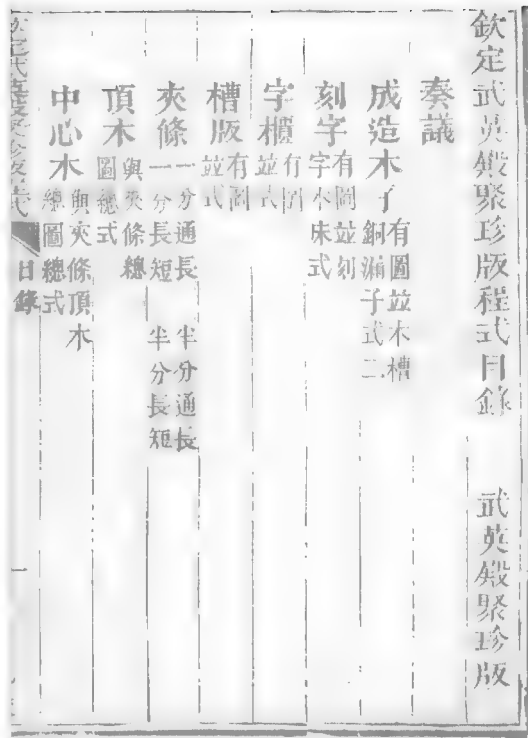 欽定武英殿聚珍版程式目錄　武英殿聚珍版
奏議
成造木子有圖並木槽銅漏子式二
刻字有圖並刻字木床式
字櫃有圖並式
槽版有圖並式
夾條一分通長一分長短　半分通長半分長短
頂木與夾條總圖總式
中心木與夾條頂木總圖總式
欽定武英殿聚珍版程式　目錄　一